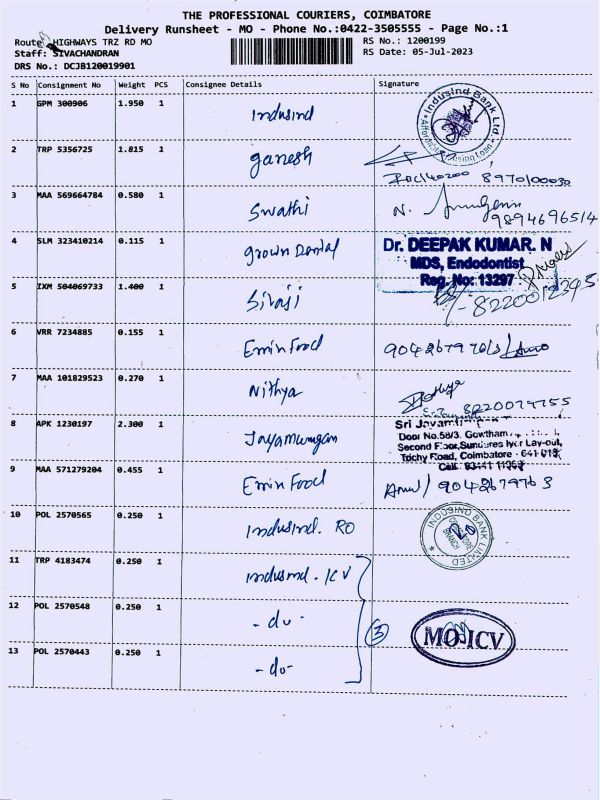 THE PROFESSIONAL COURIERS, COIMBATORE
Delivery Runsheet - MO - Phone No.:0422-3505555 - Page No.:1
Route: HIGHWAYS TRZ RD MO
RS No.: 1200199
Staff: SIVACHANDRAN
RS Date: 05-Jul-2023
DRS No.: DCJB120019901
S No Consignment No Weight PCS Consignee Details Signature
1 GPM 300906 1.950 1 Indusind
IndusInd Bank Ltd.
2 TRP 5356725 1.815 1 ganesh
8970100030
3 MAA 569664784 0.580 1 Swathi
N.
9894696514
4 SLM 323410214 0.115 1 grown Dental
Dr. DEEPAK KUMAR. N
MDS, Endodontist
Reg. No: 13297
5 IXM 504069733 1.400 1 Sivaji
8220012345
6 VRR 7234885 0.155 1 Emin Food
7 MAA 101829523 0.270 1 Nithya
8220079755
8 APK 1230197 2.300 1 Jayamurugan
Door No.58/3. Gowtham
Second Floor,Sundares Iyer Lay-out,
Trichy Road, Coimbatore - 641 018
9 MAA 571279204 0.455 1 Emin Food
9042679763
10 POL 2570565 0.250 1 Indusind. RO
INDUSIND BANK LIMITED
COIMBATORE BRANCH
11 TRP 4183474 0.250 1 Indusind. ICV
12 POL 2570548 0.250 1 - do -
3
MO ICV
13 POL 2570443 0.250 1 - do -